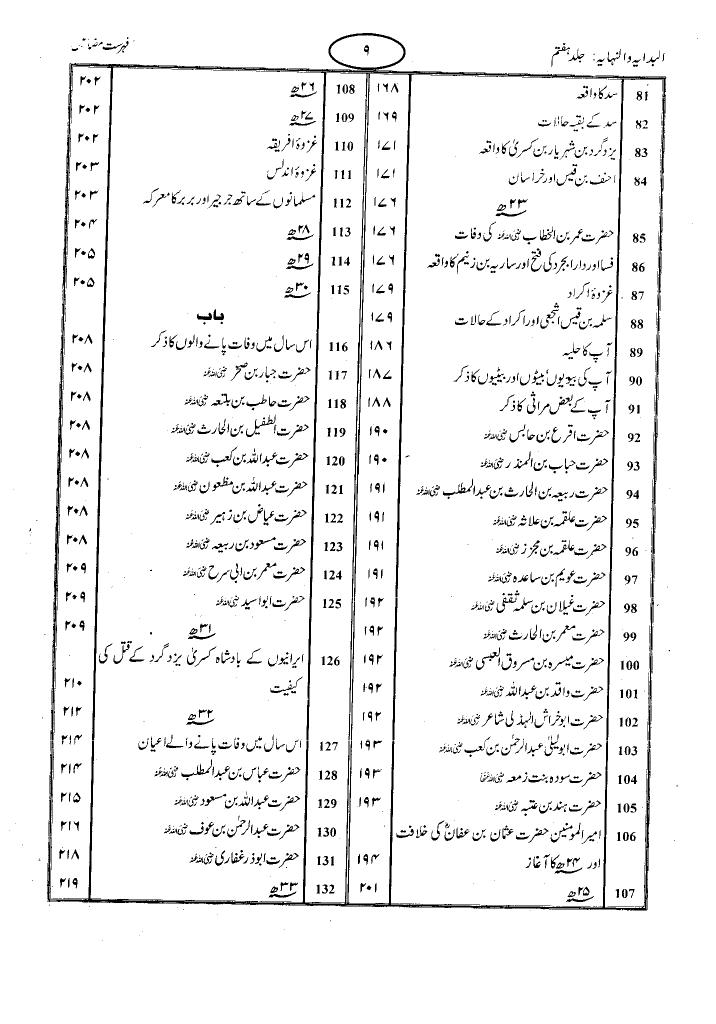 البدایہ والنہایہ: جلد ہفتم
۹
فہرست مضامین
81 سد کا واقعہ ۱۶۸
82 سد کے بقیہ حالات ۱۶۹
83 یزدگرد بن شہریار بن کسریٰ کا واقعہ ۱۷۱
84 احنف بن قیس اور خراسان ۱۷۱
۲۳ھ ۱۷۶
85 حضرت عمر بن الخطاب رضی اللہ عنہ کی وفات ۱۷۶
86 فسا اور دار ابجرد کی فتح اور ساریہ بن زنیم کا واقعہ ۱۷۶
87 غزوۂ اکراد ۱۷۹
88 سلمہ بن قیس اشجعی اور اکراد کے حالات ۱۷۹
89 آپ کا حلیہ ۱۸۶
90 آپ کی بیویوں' بیٹوں اور بیٹیوں کا ذکر ۱۸۷
91 آپ کے بعض مراثی کا ذکر ۱۸۸
92 حضرت اقرع بن حابس رضی اللہ عنہ ۱۹۰
93 حضرت حباب بن المنذر رضی اللہ عنہ ۱۹۰
94 حضرت ربیعہ بن الحارث بن عبدالمطلب رضی اللہ عنہ ۱۹۱
95 حضرت علقمہ بن علاثہ رضی اللہ عنہ ۱۹۱
96 حضرت علقمہ بن مجزز رضی اللہ عنہ ۱۹۱
97 حضرت عویم بن ساعدہ رضی اللہ عنہ ۱۹۱
98 حضرت غیلان بن سلمہ ثقفی رضی اللہ عنہ ۱۹۲
99 حضرت معمر بن الحارث رضی اللہ عنہ ۱۹۲
100 حضرت میسرہ بن مسروق العبسی رضی اللہ عنہ ۱۹۲
101 حضرت واقد بن عبداللہ رضی اللہ عنہ ۱۹۲
102 حضرت ابوخراش الہذلی شاعر رضی اللہ عنہ ۱۹۲
103 حضرت ابولیلیٰ عبدالرحمٰن بن کعب رضی اللہ عنہ ۱۹۳
104 حضرت سودہ بنت زمعہ رضی اللہ عنہا ۱۹۳
105 حضرت ہند بن عتبہ رضی اللہ عنہ ۱۹۳
106 امیر المومنین حضرت عثمان بن عفانؓ کی خلافت
اور ۲۴ھ کا آغاز ۱۹۴
107 ۲۵ھ ۲۰۱
108 ۲۶ھ ۲۰۲
109 ۲۷ھ ۲۰۲
110 غزوۂ افریقہ ۲۰۲
111 غزوۂ اندلس ۲۰۳
112 مسلمانوں کے ساتھ جرجیر اور بربر کا معرکہ ۲۰۳
113 ۲۸ھ ۲۰۴
114 ۲۹ھ ۲۰۵
115 ۳۰ھ ۲۰۵
باب
116 اس سال میں وفات پانے والوں کا ذکر ۲۰۸
117 حضرت جبار بن صخر رضی اللہ عنہ ۲۰۸
118 حضرت حاطب بن بلتعہ رضی اللہ عنہ ۲۰۸
119 حضرت الطفیل بن الحارث رضی اللہ عنہ ۲۰۸
120 حضرت عبداللہ بن کعب رضی اللہ عنہ ۲۰۸
121 حضرت عبداللہ بن مظعون رضی اللہ عنہ ۲۰۸
122 حضرت عیاض بن زہیر رضی اللہ عنہ ۲۰۸
123 حضرت مسعود بن ربیعہ رضی اللہ عنہ ۲۰۸
124 حضرت معمر بن ابی سرح رضی اللہ عنہ ۲۰۹
125 حضرت ابواسید رضی اللہ عنہ ۲۰۹
۳۱ھ ۲۰۹
126 ایرانیوں کے بادشاہ کسریٰ یزدگرد کے قتل کی
کیفیت ۲۱۰
۳۲ھ ۲۱۲
127 اس سال میں وفات پانے والے اعیان ۲۱۴
128 حضرت عباس بن عبدالمطلب رضی اللہ عنہ ۲۱۴
129 حضرت عبداللہ بن مسعود رضی اللہ عنہ ۲۱۵
130 حضرت عبدالرحمٰن بن عوف رضی اللہ عنہ ۲۱۶
131 حضرت ابوذر غفاری رضی اللہ عنہ ۲۱۸
132 ۳۳ھ ۲۱۹